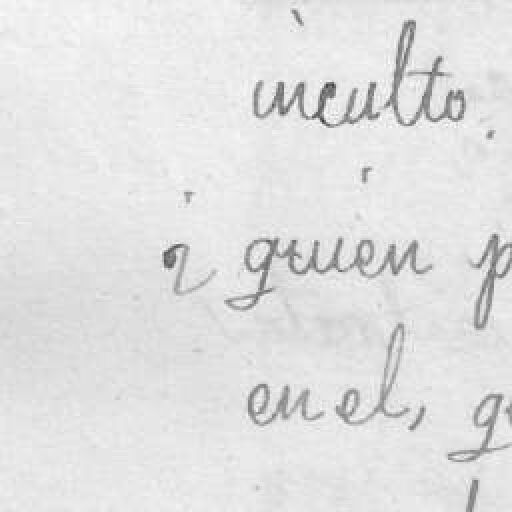 inculto.
¿ quien p
en el, q